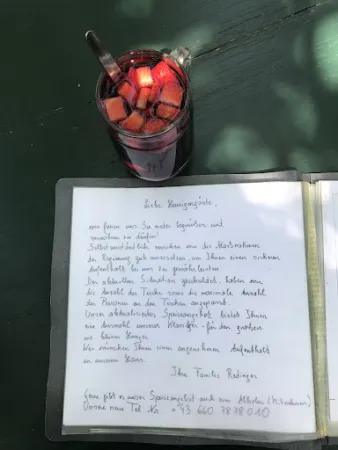 Liebe Heurigengäste,
wir freuen uns Sie wieder begrüßen und
verwöhnen zu dürfen!
Selbstverständlich werden wir die Maßnahmen
der Regierung gut umsetzen, um Ihnen einen sicheren
Aufenthalt bei uns zu gewährleisten.
Der aktuellen Situation geschuldet, haben wir
die Anzahl der Tische sowie die maximale Anzahl
der Personen an den Tischen angepasst.
Unser Speisenangebot bietet Ihnen
eine Auswahl unserer Klassiker - für den großen
und kleinen Hunger.
Wir wünschen Ihnen einen angenehmen Aufenthalt
in unserem Haus.
Ihre Familie
(gerne gibt es unser Speisenangebot auch zum Abholen
Unsere neue Tel. Nr. +43 660 7878010